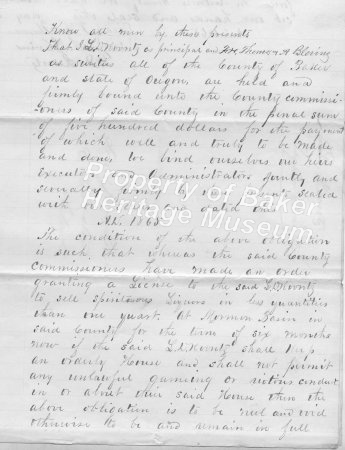 Know all men by these presents
That I L.D. Worntz as principal and Wm Thomas & A Blevins
as sureties all of the County of Baker
and state of Oregon are held and
firmly bound unto the County commissi-
oners of said County in the penal sum
of five hundred dollars for the payment
of which well and truly to be made
and done, we bind ourselves our heirs
Executors Administrators jointly and
severally firmly sealed
with dated this
A.D. 186
The condition of the above obligation
is such that whereas the said County
commissioners have made an order
granting a License to the said L.D.
to sell spirituous Liquors in less quantities
than one quart. At Mormon Basin in
said County for the term of six months
now if the said L.D. shall keep
an orderly House and shall not permit
any unlawful gameing or riotous conduct
in or about their said House then the
above obligation is to be null and void
otherwise to be and remain in full
Property of Baker
Heritage Museum